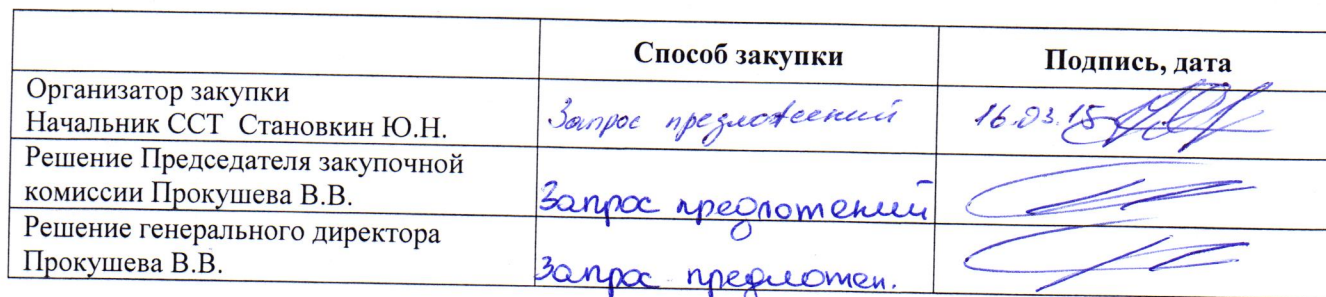 Способ закупки Подпись, дата
Организатор закупки
Начальник ССТ Становкин Ю.Н. Запрос предложений 16.03.15
Решение Председателя закупочной
комиссии Прокушева В.В. Запрос предложений
Решение генерального директора
Прокушева В.В. Запрос предложен.